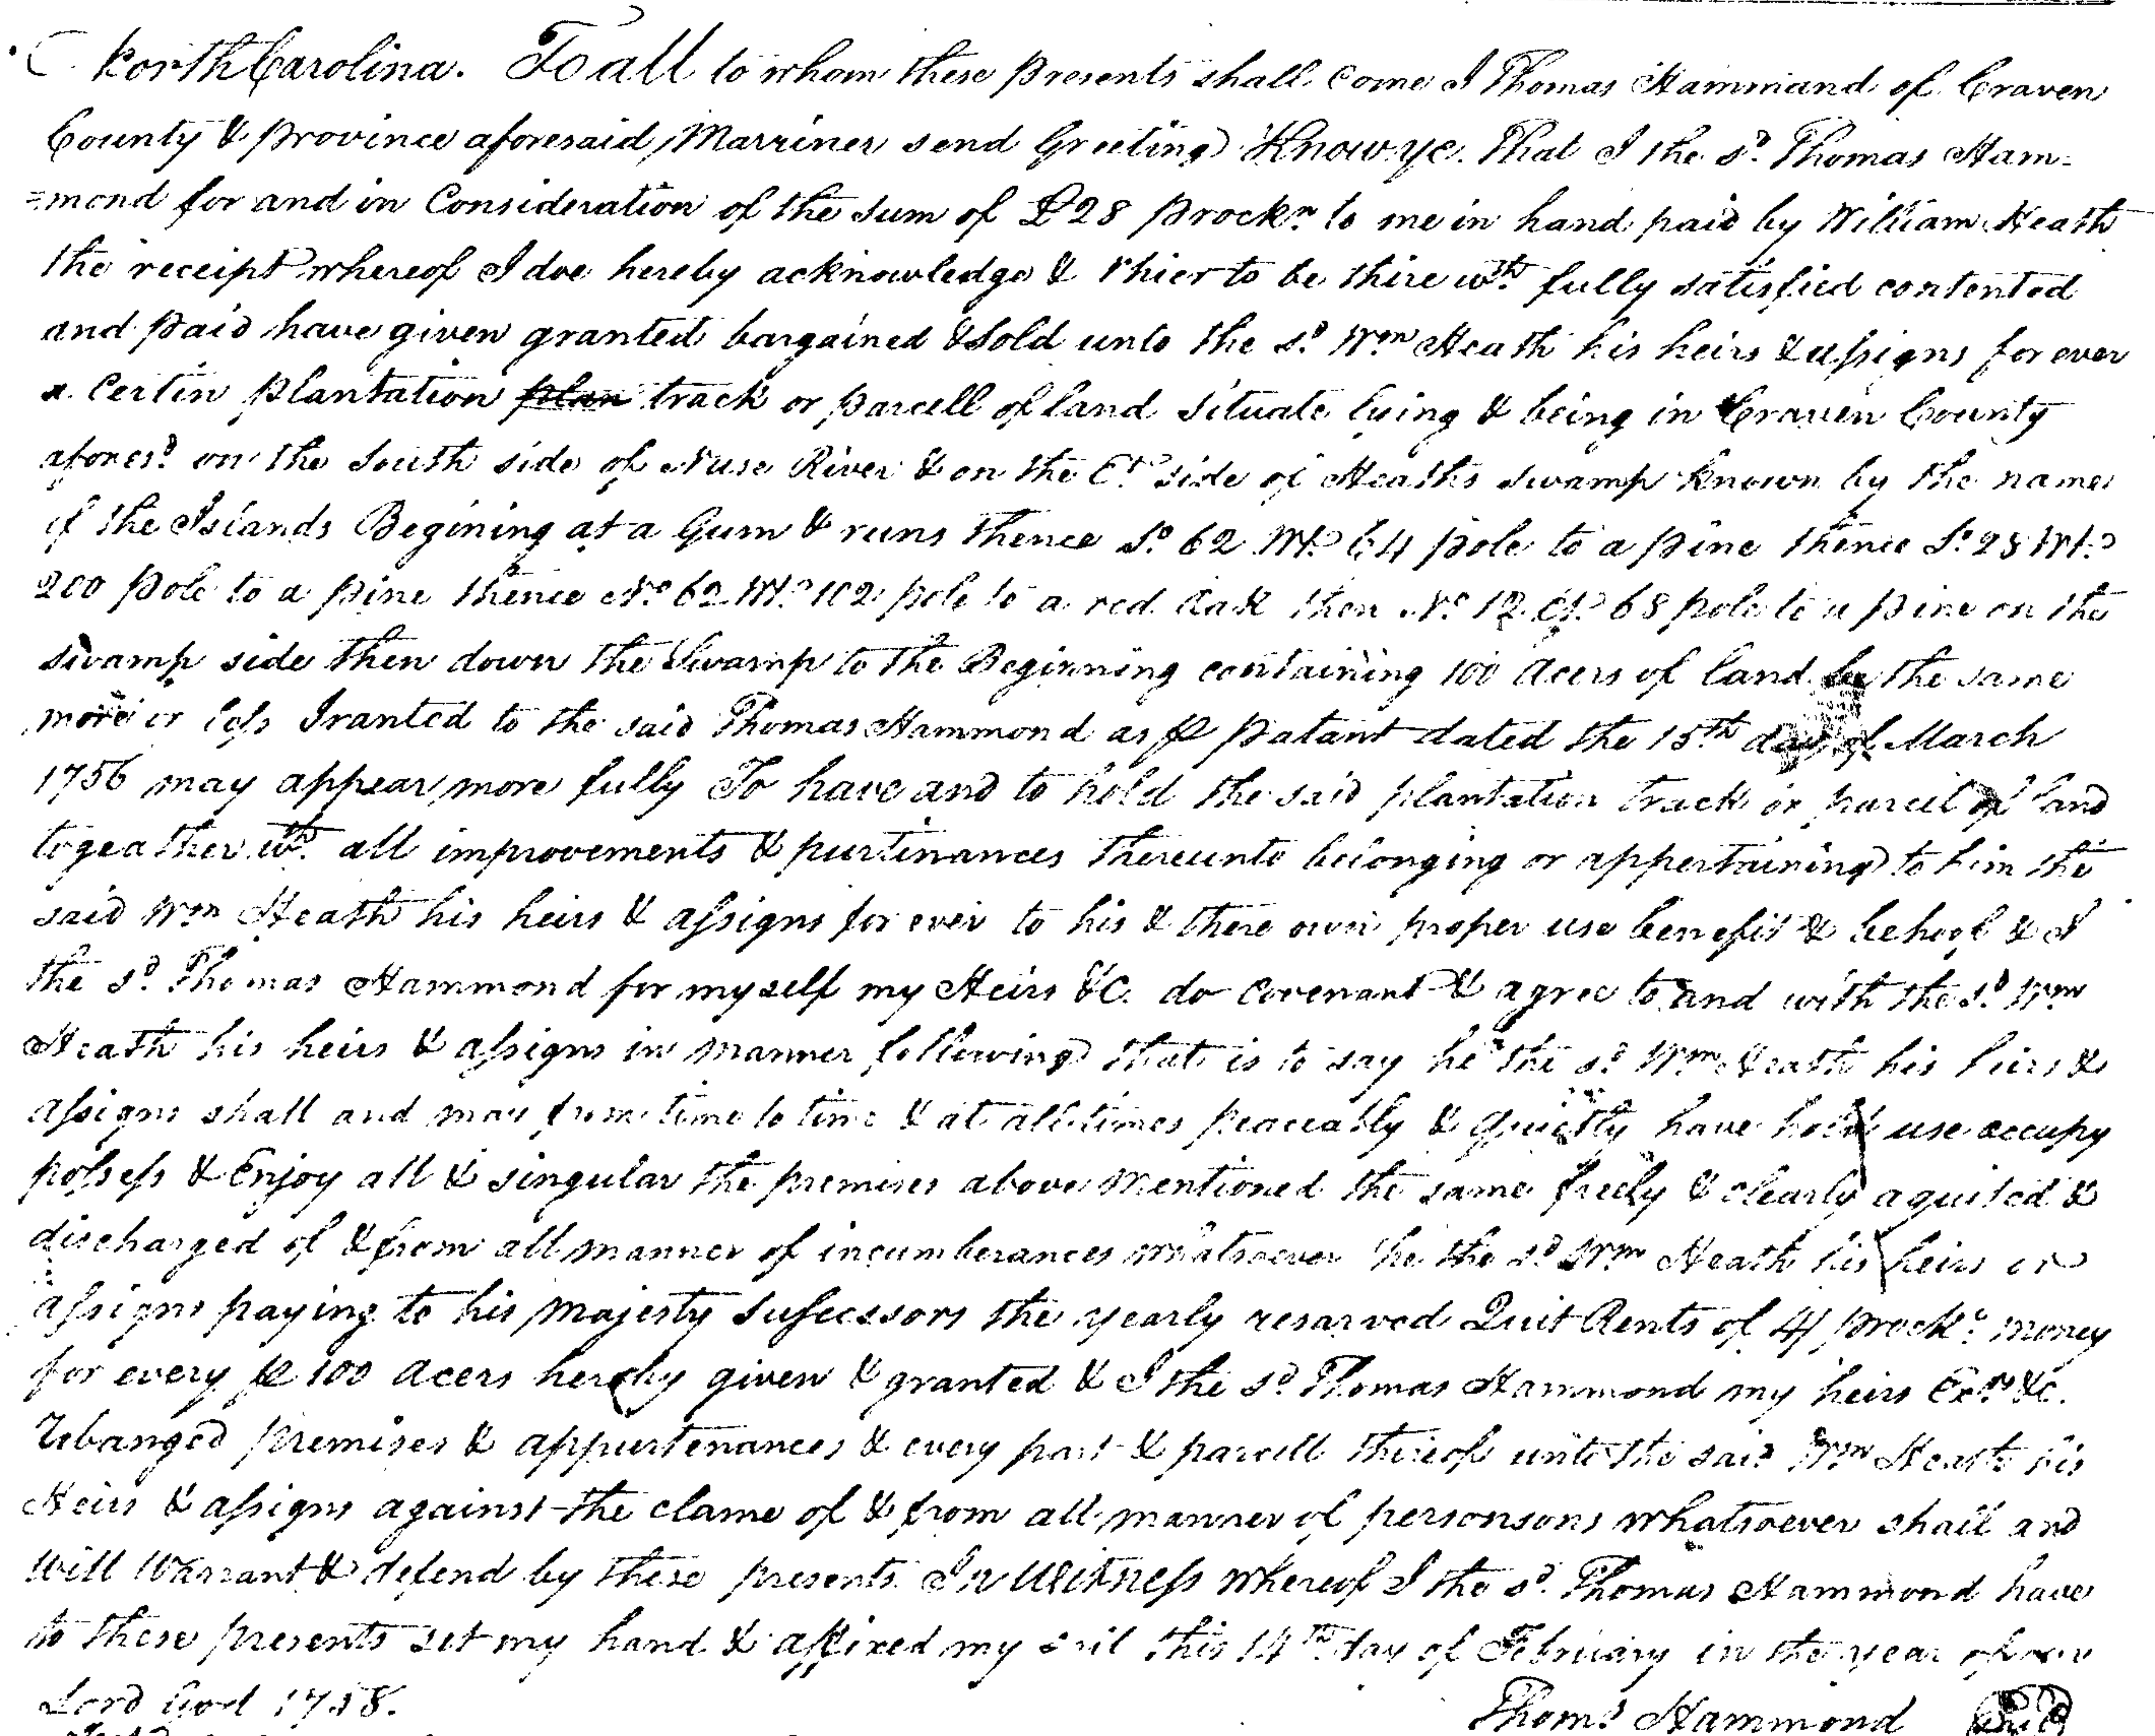 North Carolina. To all to whom these presents shall come I Thomas Hammand of Craven
County & province aforesaid Marriner send Greeting Know ye. That I the sd. Thomas Ham=
=mond for and in Consideration of the sum of £28 prockn. to me in hand paid by William Heath
the receipt whereof I doe hereby acknowledge & thier to be thire wth. fully satisfied contented
and paid have given granted bargained & sold unto the sd. Wm Heath his heirs & assigns for ever
a Certin plantation plan track or parcell of land situate lying & being in Craven County
aforesd. on the South side of Nuse River & on the Et. side of Heaths swamp known by the name
of the Islands Begining at a Gum & runs thence So. 62 Wt. 64 pole to a pine thence So. 28 Wt.
200 pole to a pine thence No. 62 Wt. 102 pole to a red oak then No. 12 Et. 68 pole to a pine on the
swamp side then down the Swamp to the Beginning containing 100 acers of land be the same
more or less Iranted to the said Thomas Hammond as p patant dated the 15th day of March
1756 may appear more fully To have and to hold the said plantation track or parcel of land
togeather wth. all improvements & purtinances thereunto belonging or appertaining to him the
said Wm Heath his heirs & assigns for ever to his & there own proper use benefit & behoof & I
the sd. Thomas Hammond for my self my Heirs &c. do covenant & agree to and with the sd. Wm
Heath his heirs & assigns in manner following that is to say he the sd. Wm Heath his hiers &
assigns shall and may from time to time & at all times peaceably & quietly have hold use occupy
possess & Enjoy all & singular the premises above mentioned the same freely & clearly aquited &
discharged of & from all manner of incumberances whatsoever he the sd Wm Heath his heirs or
assigns paying to his Majesty Susecssors the yearly resarved Quit Rents of 4/ prock. money
for every p 100 acers hereby given & granted & I the sd. Thomas Hammond my heirs Exrs. &c.
premises & appurtenances & every part & parcell thereof unto the said Wm Heath his
Heirs & assigns against the clame of & from all manner of personsons whatsoever shall and
will Warrant & defend by these presents In Witness whereof I the sd. Thomas Hammond have
to these presents set my hand & affixed my seil this 14th day of February in the year of our
Lord God 1758.
Thoms. Hammond